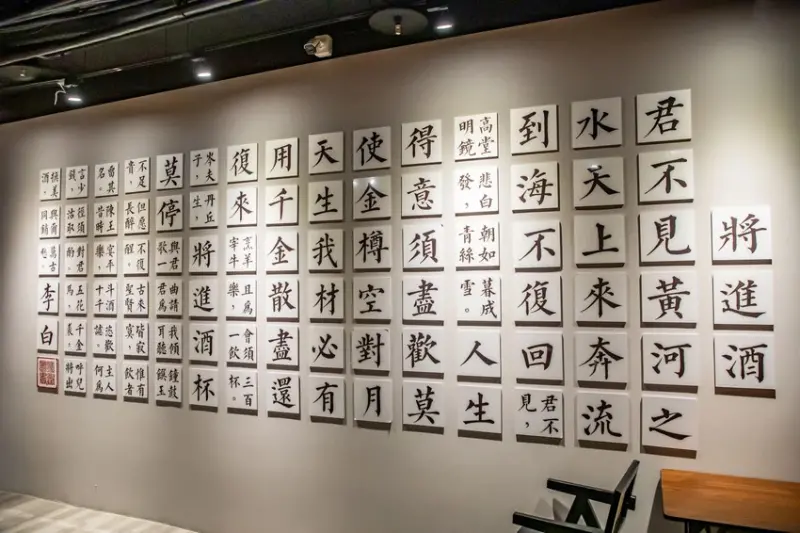 將進酒
君不見黃河之
水天上來奔流
到海不復回君不見,
高堂明鏡悲白發,朝如青絲暮成雪。人生
得意須盡歡莫
使金樽空對月
天生我材必有
用千金散盡還
復來烹羊宰牛且爲樂,會須一飲三百杯。
岑夫子,丹丘生,將進酒杯
莫停與君歌一曲請君爲我傾耳聽鐘鼓饌玉
不足貴,但愿長醉不復醒,古來聖賢皆寂寞,惟有飲者
留其名。陳王昔時宴平樂,斗酒十千恣歡謔。主人何爲
言少錢,徑須沽取對君酌。五花馬,千金裘。呼兒將出
換美酒,與爾同銷萬古愁。李白